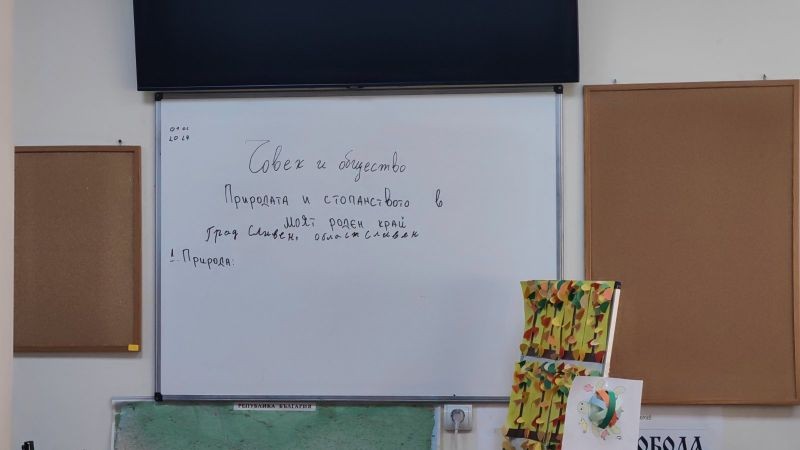 Човек и общество
Природата и стопанството в
моят роден край
Град Сливен, област Сливен
1. Природа:
РЕПУБЛИКА БЪЛГАРИЯ
ОБОДА